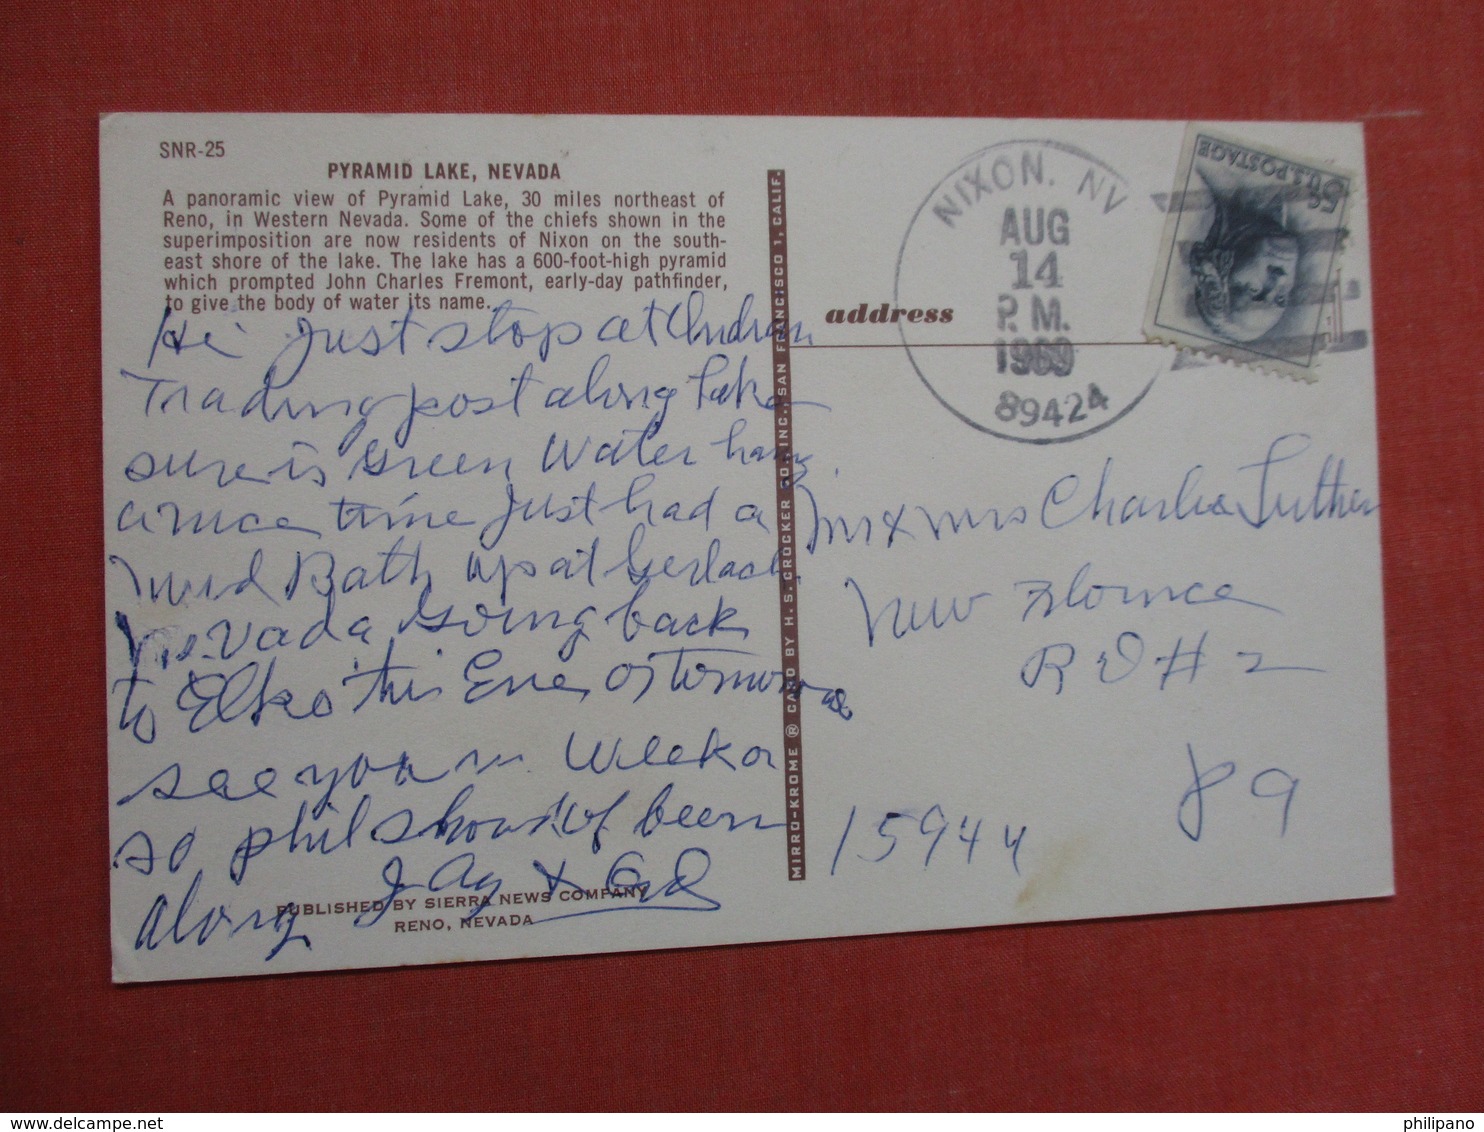 SNR-25
PYRAMID LAKE, NEVADA
A panoramic view of Pyramid Lake, 30 miles northeast of
Reno, in Western Nevada. Some of the chiefs shown in the
superimposition are now residents of Nixon on the south-
east shore of the lake. The lake has a 600-foot-high pyramid
which prompted John Charles Fremont, early-day pathfinder,
to give the body of water its name.
Hi Just stop at Indian
Trading post along Lake
sure is Green Water hav
a nice time Just had a
mud Bath up at Gerlach
Nevada Going back
to Elko this Eve or tomorrow
see you in week or
so Phil should of been
along Jay &
PUBLISHED BY SIERRA NEWS COMPANY
RENO, NEVADA
MIRRO-KROME ® CARD BY H. S. CROCKER CO., INC., SAN FRANCISCO 1, CALIF.
address
NIXON, NV
AUG
14
P. M.
1969
89424
5¢ U.S. POSTAGE
Mr & Mrs Charlie Luther
New Florence
R D # 2
89
15944
philipano